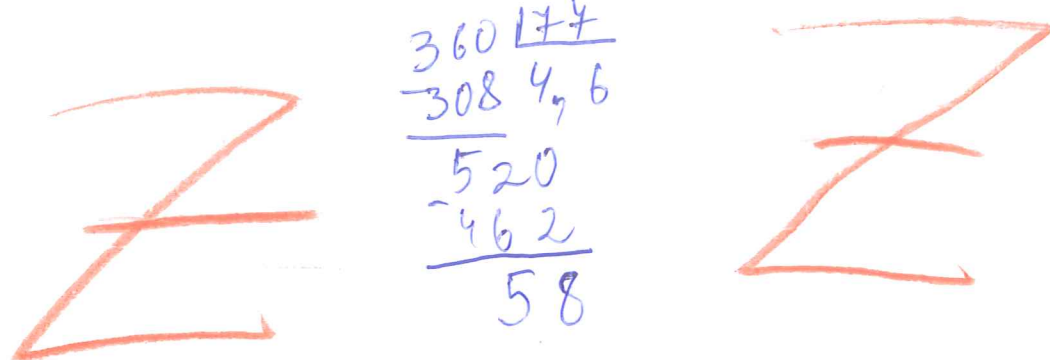 360 77
-308 4,6
520
-462
58